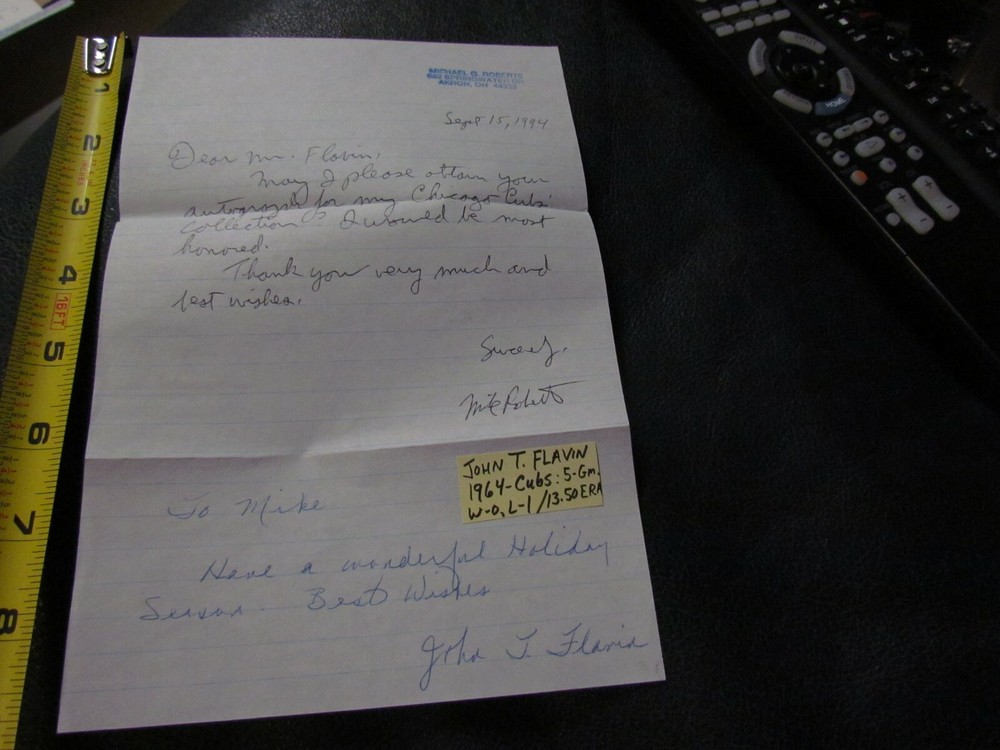 MICHAEL G. ROBERTS
SPRINGWATER DR.
AKRON, OH 44333
Sept 15, 1994
Dear Mr. Flavin,
May I please obtain your
autograph for my Chicago Cubs'
collection? I would be most
honored.
Thank you very much and
best wishes.
Sincerely,
Mike Roberts
JOHN T. FLAVIN
1964-Cubs: 5-Gm.
W-0, L-1/13.50 ERA
To Mike
Have a wonderful Holiday
Season. Best Wishes
John T. Flavin
1
2
3
4
16FT
5
6
7
8